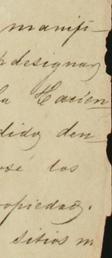 manifi-
designar
la Hacien
dido den-
ose los
opiedad.
sitios m